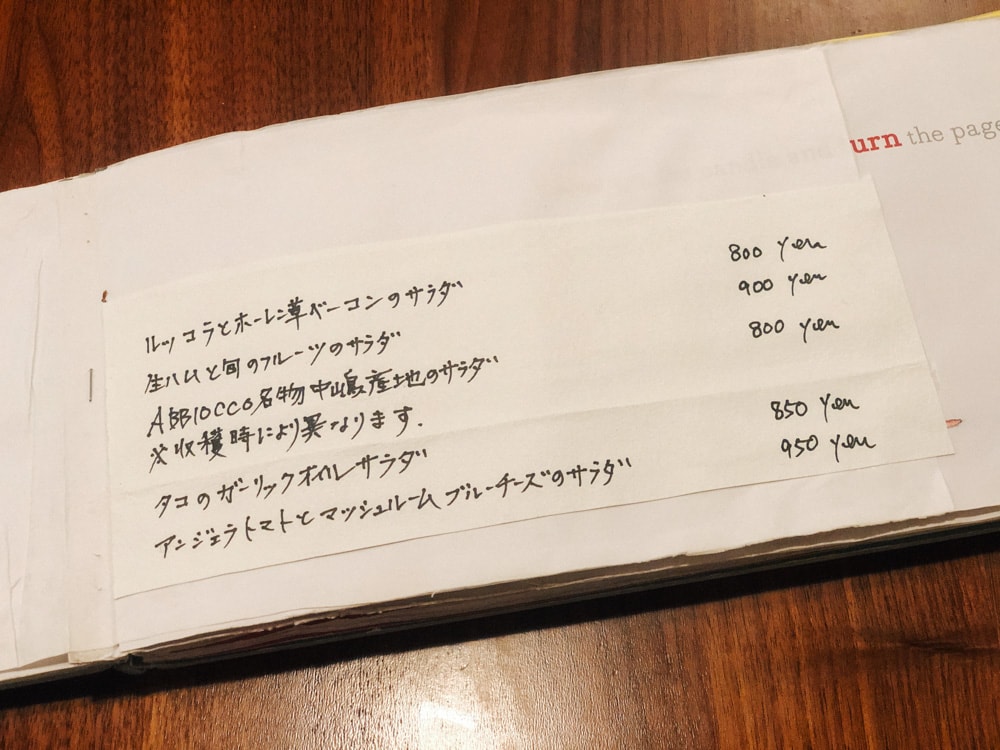 urn the page
ルッコラとホーレン草ベーコンのサラダ 800 yen
生ハムと旬のフルーツのサラダ 900 yen
ABBIOCCO名物中嶋産地のサラダ 800 yen
※収穫時により異なります.
タコのガーリックオイルサラダ 850 yen
アンジェラトマトとマッシュルームブルーチーズのサラダ 950 yen